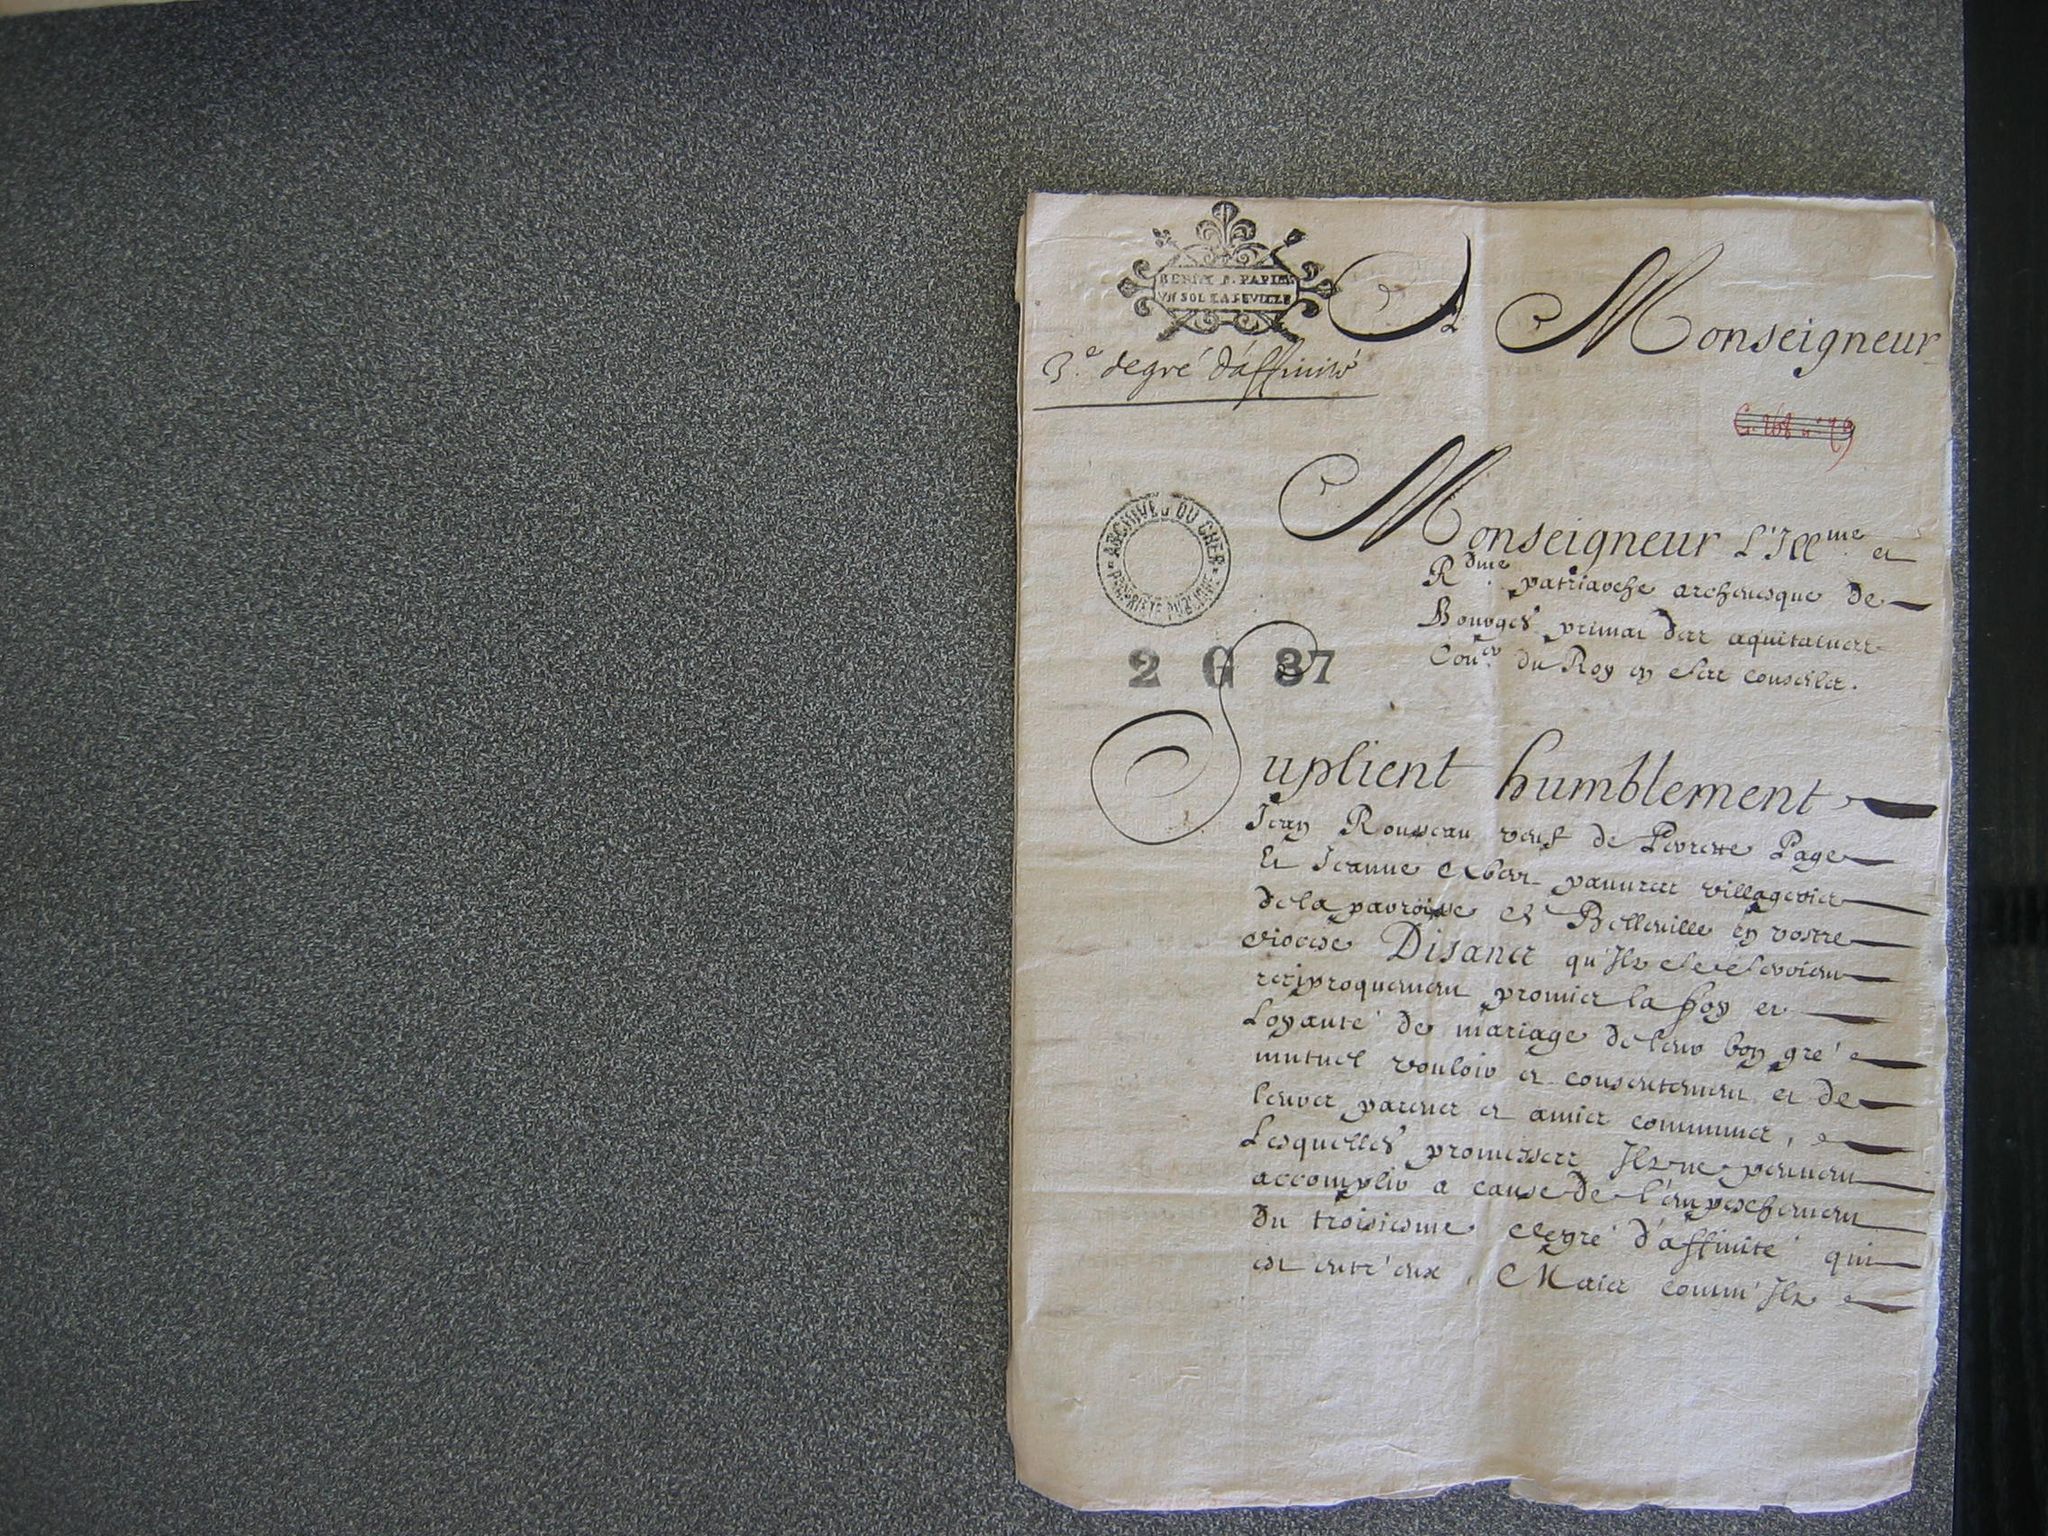 BERRY P. PAPIER
UN SOL LA FEUILLE
A Monseigneur
3.e degré d'affinité
Monseigneur L'Ill.me et
R.dme patriarche archeuesque de
Bourges primat des aquitaines
Con.er du Roy en ses conseils.
ARCHIVES DU CHER
PROPRIETE PUBLIQUE
2 G 37
Suplient humblement
Jean Rousseau veuf de Perrette Page
Et Jeanne pauures villageois
de la parroisse de Belleuille en vostre
diocese Disants qu'Ilz se seroient
reciproquement promis la foy et
Loyauté de mariage de leur bon gré
mutuel vouloir et consentement et de
leurs parents et amis communs,
Lesquelles promesses Ilz ne peuuent
accomplir a cause de l'empeschement
du troisiesme degré d'affinité qui
est entr'eux, Mais comm'Ilz